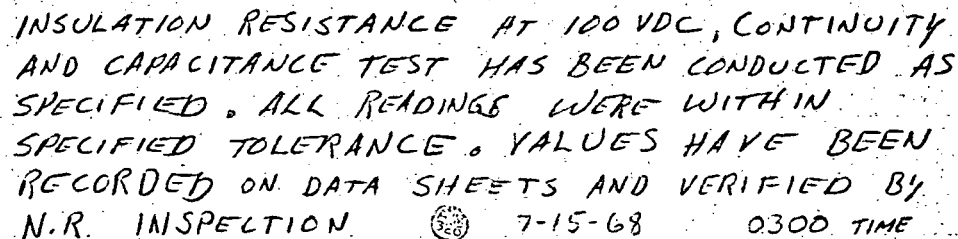 INSULATION RESISTANCE AT 100 VDC, CONTINUITY
AND CAPACITANCE TEST HAS BEEN CONDUCTED AS
SPECIFIED. ALL READINGS WERE WITHIN
SPECIFIED TOLERANCE. VALUES HAVE BEEN
RECORDED ON DATA SHEETS AND VERIFIED BY
N.R. INSPECTION 7-15-68 0300 TIME